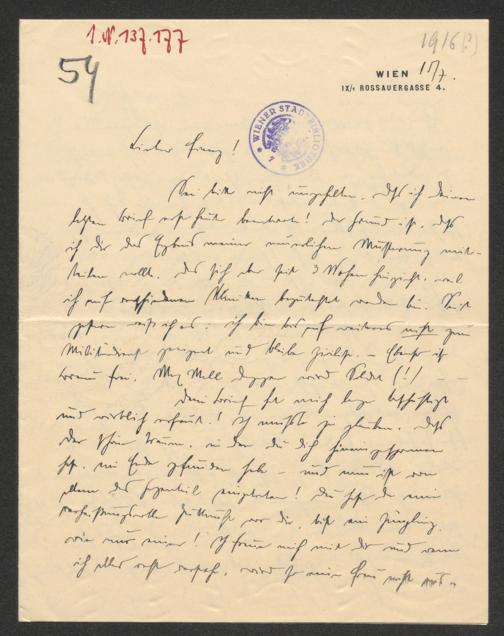 I.N. 137.177
54
1916 (?)
WIEN 17/7.
IX/1 ROSSAUERGASSE 4.
WIENER STADTBIBLIOTHEK
Lieber Franz!
Sei bitte nicht ungehalten, daß ich deinen
letzten Brief erst heute beantworte! Der Grund ist, daß
ich dir das Ergebnis meiner neuerlichen Musterung mit-
teilen wollte, das sich aber seit 3 Wochen hinzieht, weil
ich auf verschiedenen Kliniken begutachtet worden bin. Seit
gestern weiß ich es: ich bin bis auf weiteres nicht zum
Militärdienst geeignet und bleibe Zivilist. – Ebenso ist
frei. Max Mell dagegen wird Soldat (!)
Dein Brief hat mich lange beschäftigt
und wirklich erfreut! Ich mußte ja glauben, daß
der schöne Traum, in den du dich hineingesponnen
hast, ein Ende gefunden habe – und nun ist von
allem das Gegenteil eingetreten! Du hast die
Zukunft vor dir, bist ein Jüngling,
wie nur einer! Ich freue mich mit dir und wenn
ich alles recht verstehe, wird ja eine Frau nicht